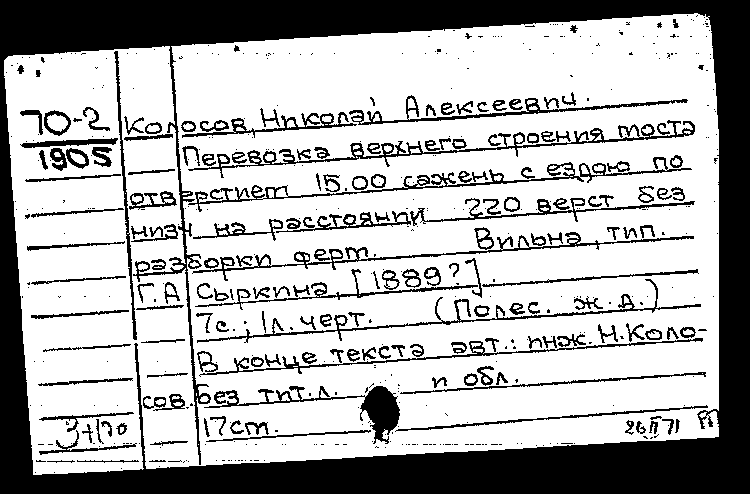 70-2
1905
Колосов, Николай Алексеевич.
Перевозка верхнего строения моста
отверстием 15.00 сажень с ездою по
низу на расстоянии 220 верст без
разборки ферм. Вильна, тип.
Г.А Сыркина, [1889?].
7с.; 1л. черт. (Полес. ж.д.)
В конце текста авт.: инж. Н.Коло-
сов. Без тит.л. и обл.
17см.
26 II 71